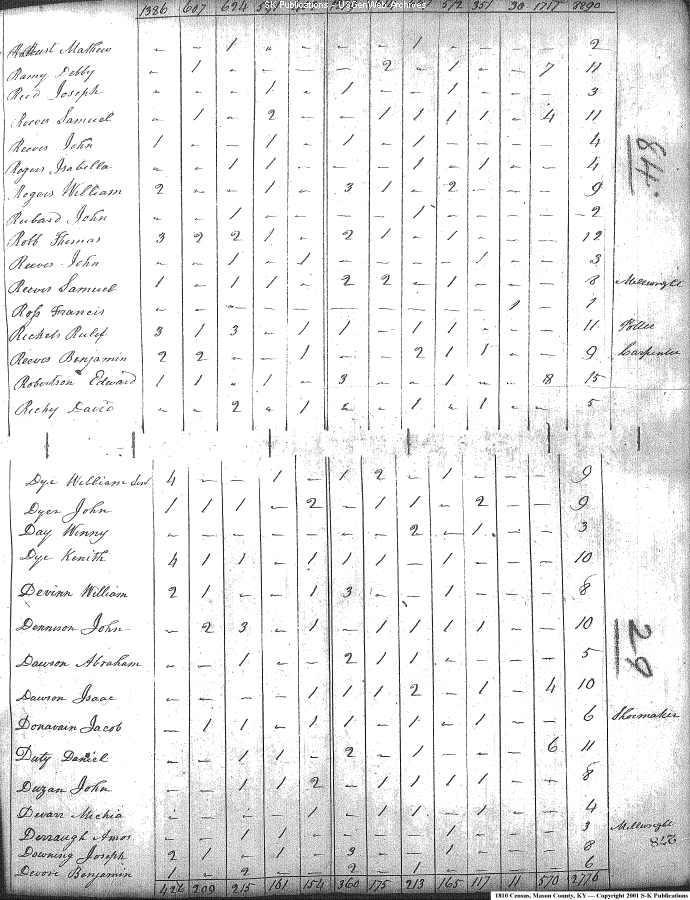 SK Publications - USGenWeb Archives
1386 607 624 572 351 30 1717 8290
Mathew - - 1 - - - - 1 - - - - 2
Ramy Debby - 1 - - - - 2 - 1 - - 7 11
Reed Joseph - - - 1 - 1 - - 1 - - - 3
Reeves Samuel - 1 - 2 - - 1 1 1 1 - 4 11
Reeves John 1 - - 1 - 1 - 1 - - - - 4
Rogers Isabella - - 1 1 - - - 1 - 1 - - 4
84
Rogers William 2 - - 1 - 3 1 - 2 - - - 9
Rubard John - - 1 - - - - 1 - - - - 2
Robb Thomas 3 2 2 1 - 2 1 - 1 - - - 12
Reeves John - - 1 - 1 - - - - 1 - - 3
Reeves Samuel 1 - 1 1 - 2 2 - 1 - - - 8 Millwright
Ross Francis - - - - - - - - - - 1 - 1
Rickets Rulef 3 1 3 - 1 1 - 1 1 - - - 11
Reeves Benjamin 2 2 - - 1 - - 2 1 1 - - 9 Carpenter
Robertson Edward 1 1 - 1 - 3 - - 1 - - 8 15
Richy David - - 2 - 1 - - 1 - 1 - - 5
Dye William 4 - - 1 - 1 2 - 1 - - - 9
Dyer John 1 1 1 - 2 - 1 1 - 2 - - 9
Day Winny - - - - - - - 2 - 1 - - 3
Dye Kenith 4 1 1 - 1 1 1 - 1 - - - 10
Devinn William 2 1 - - 1 3 - - 1 - - - 8
Dennison John - 2 3 - 1 - 1 1 1 1 - - 10
29
Dawson Abraham - - 1 - - 2 1 1 - - - - 5
Dawson Isaac - - - - 1 1 1 2 - 1 - 4 10
Donavain Jacob - 1 1 - 1 1 - 1 - 1 - - 6 Shoemaker
Duty Daniel - - 1 1 - 2 - 1 - - - 6 11
Duzan John - - 1 1 2 - 1 1 1 1 - - 8
Devarr Michia - - - - 1 - 1 1 - 1 - - 4
Derraugh Amos - - 1 1 - - - - 1 - - - 3 Millwright
278
Downing Joseph 2 1 - 1 - 3 - - 1 - - - 8
Devore Benjamin 1 - 2 - - 2 - 1 - - - - 6
426 209 215 161 154 360 175 213 165 117 11 570 2776
1810 Census, Mason County, KY — Copyright 2001 S-K Publications